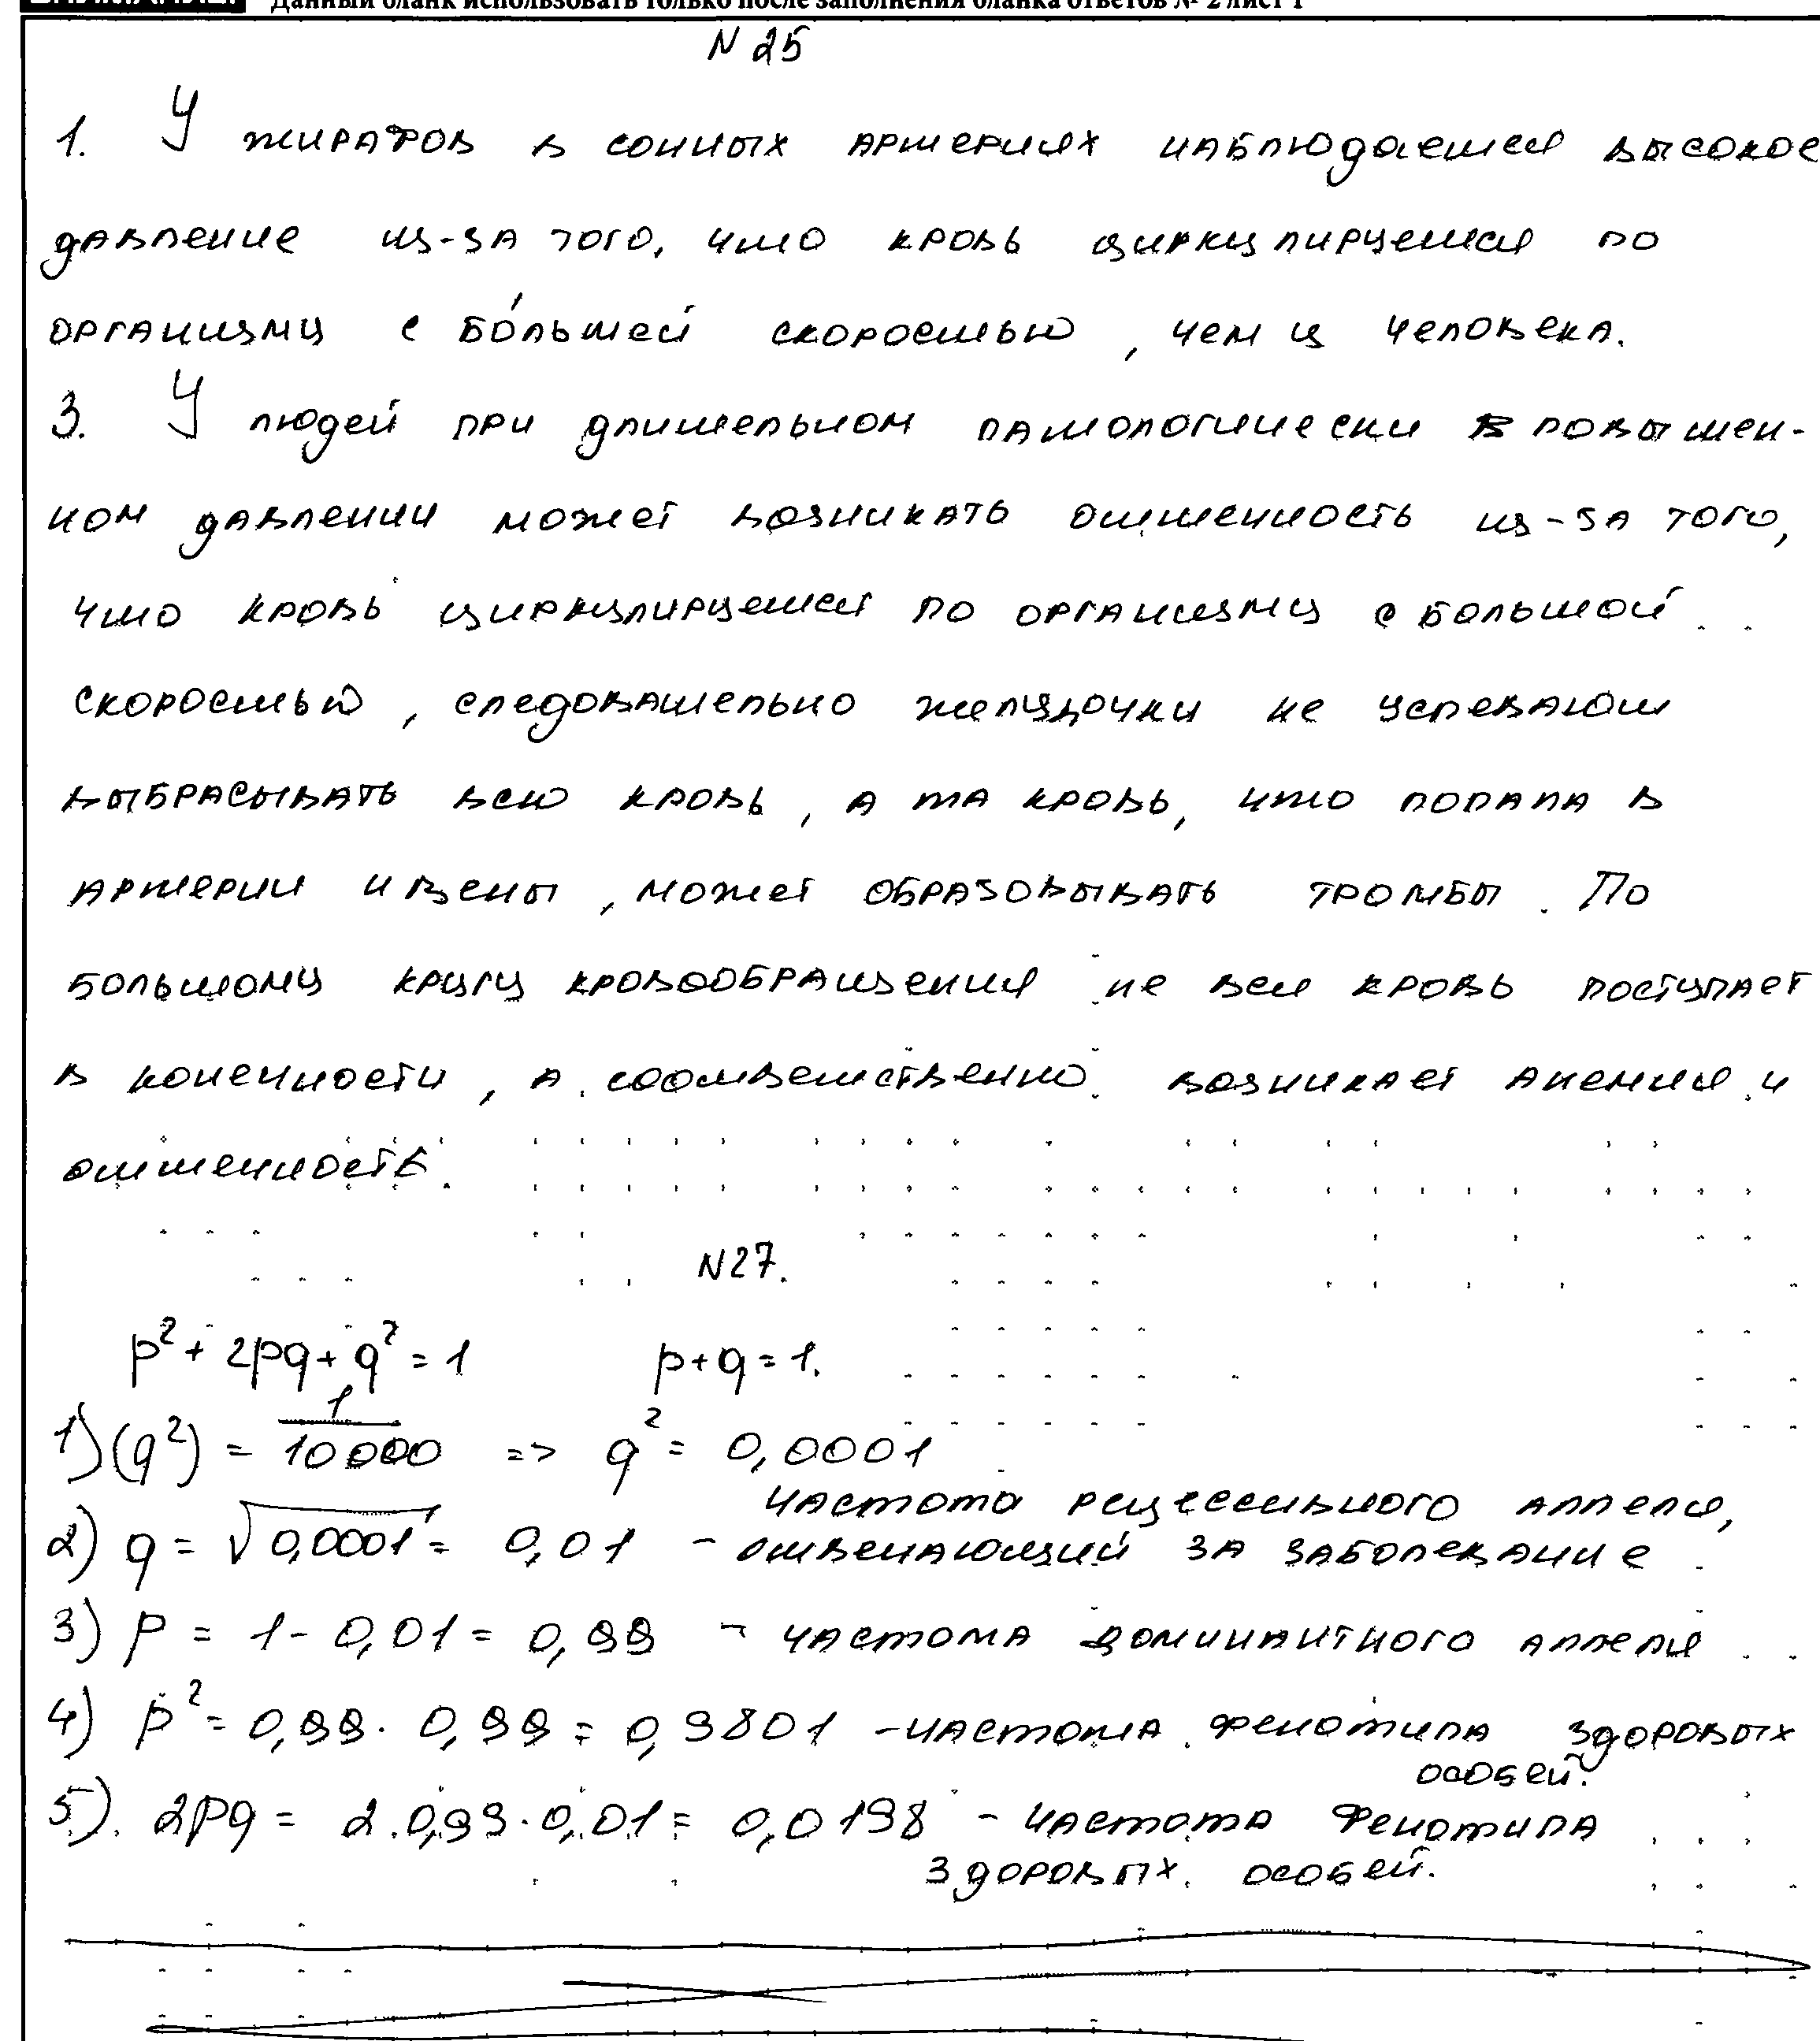 Данный бланк использовать только после заполнения бланка ответов № 2 лист 1
N 25
1. У жирафов в сонных артериях наблюдается высокое
давление из-за того, что кровь циркулирует­ся по
организму с бо́льшей скоростью, чем у человека.
3. У людей при длительном патологически повышен-
ном давлении может возникать отшенность из-за того,
что кровь циркулируется по организму с большой
скоростью, следовательно желудочки не успевают
выбрасывать всю кровь, а та кровь, что попала в
артерии и вены, может образовывать тромбы. По
большому кругу кровообращения не вся кровь поступает
в конечности, а соответственно возникает анемия и
отшенность.
N27.
p² + 2pq + q² = 1 p+q=1.
1) (q²) = 1/10000 => q² = 0,0001
частота рецессивного аллеля,
2) q = √0,0001 = 0,01 - отвечающий за заболевание
3) p = 1 - 0,01 = 0,99 - частота доминантного аллеля
4) p² = 0,99 · 0,99 = 0,9801 - частота фенотипа здоровых
особей.
5). 2pq = 2·0,99·0,01 = 0,0198 - частота фенотипа
здоровых особей.